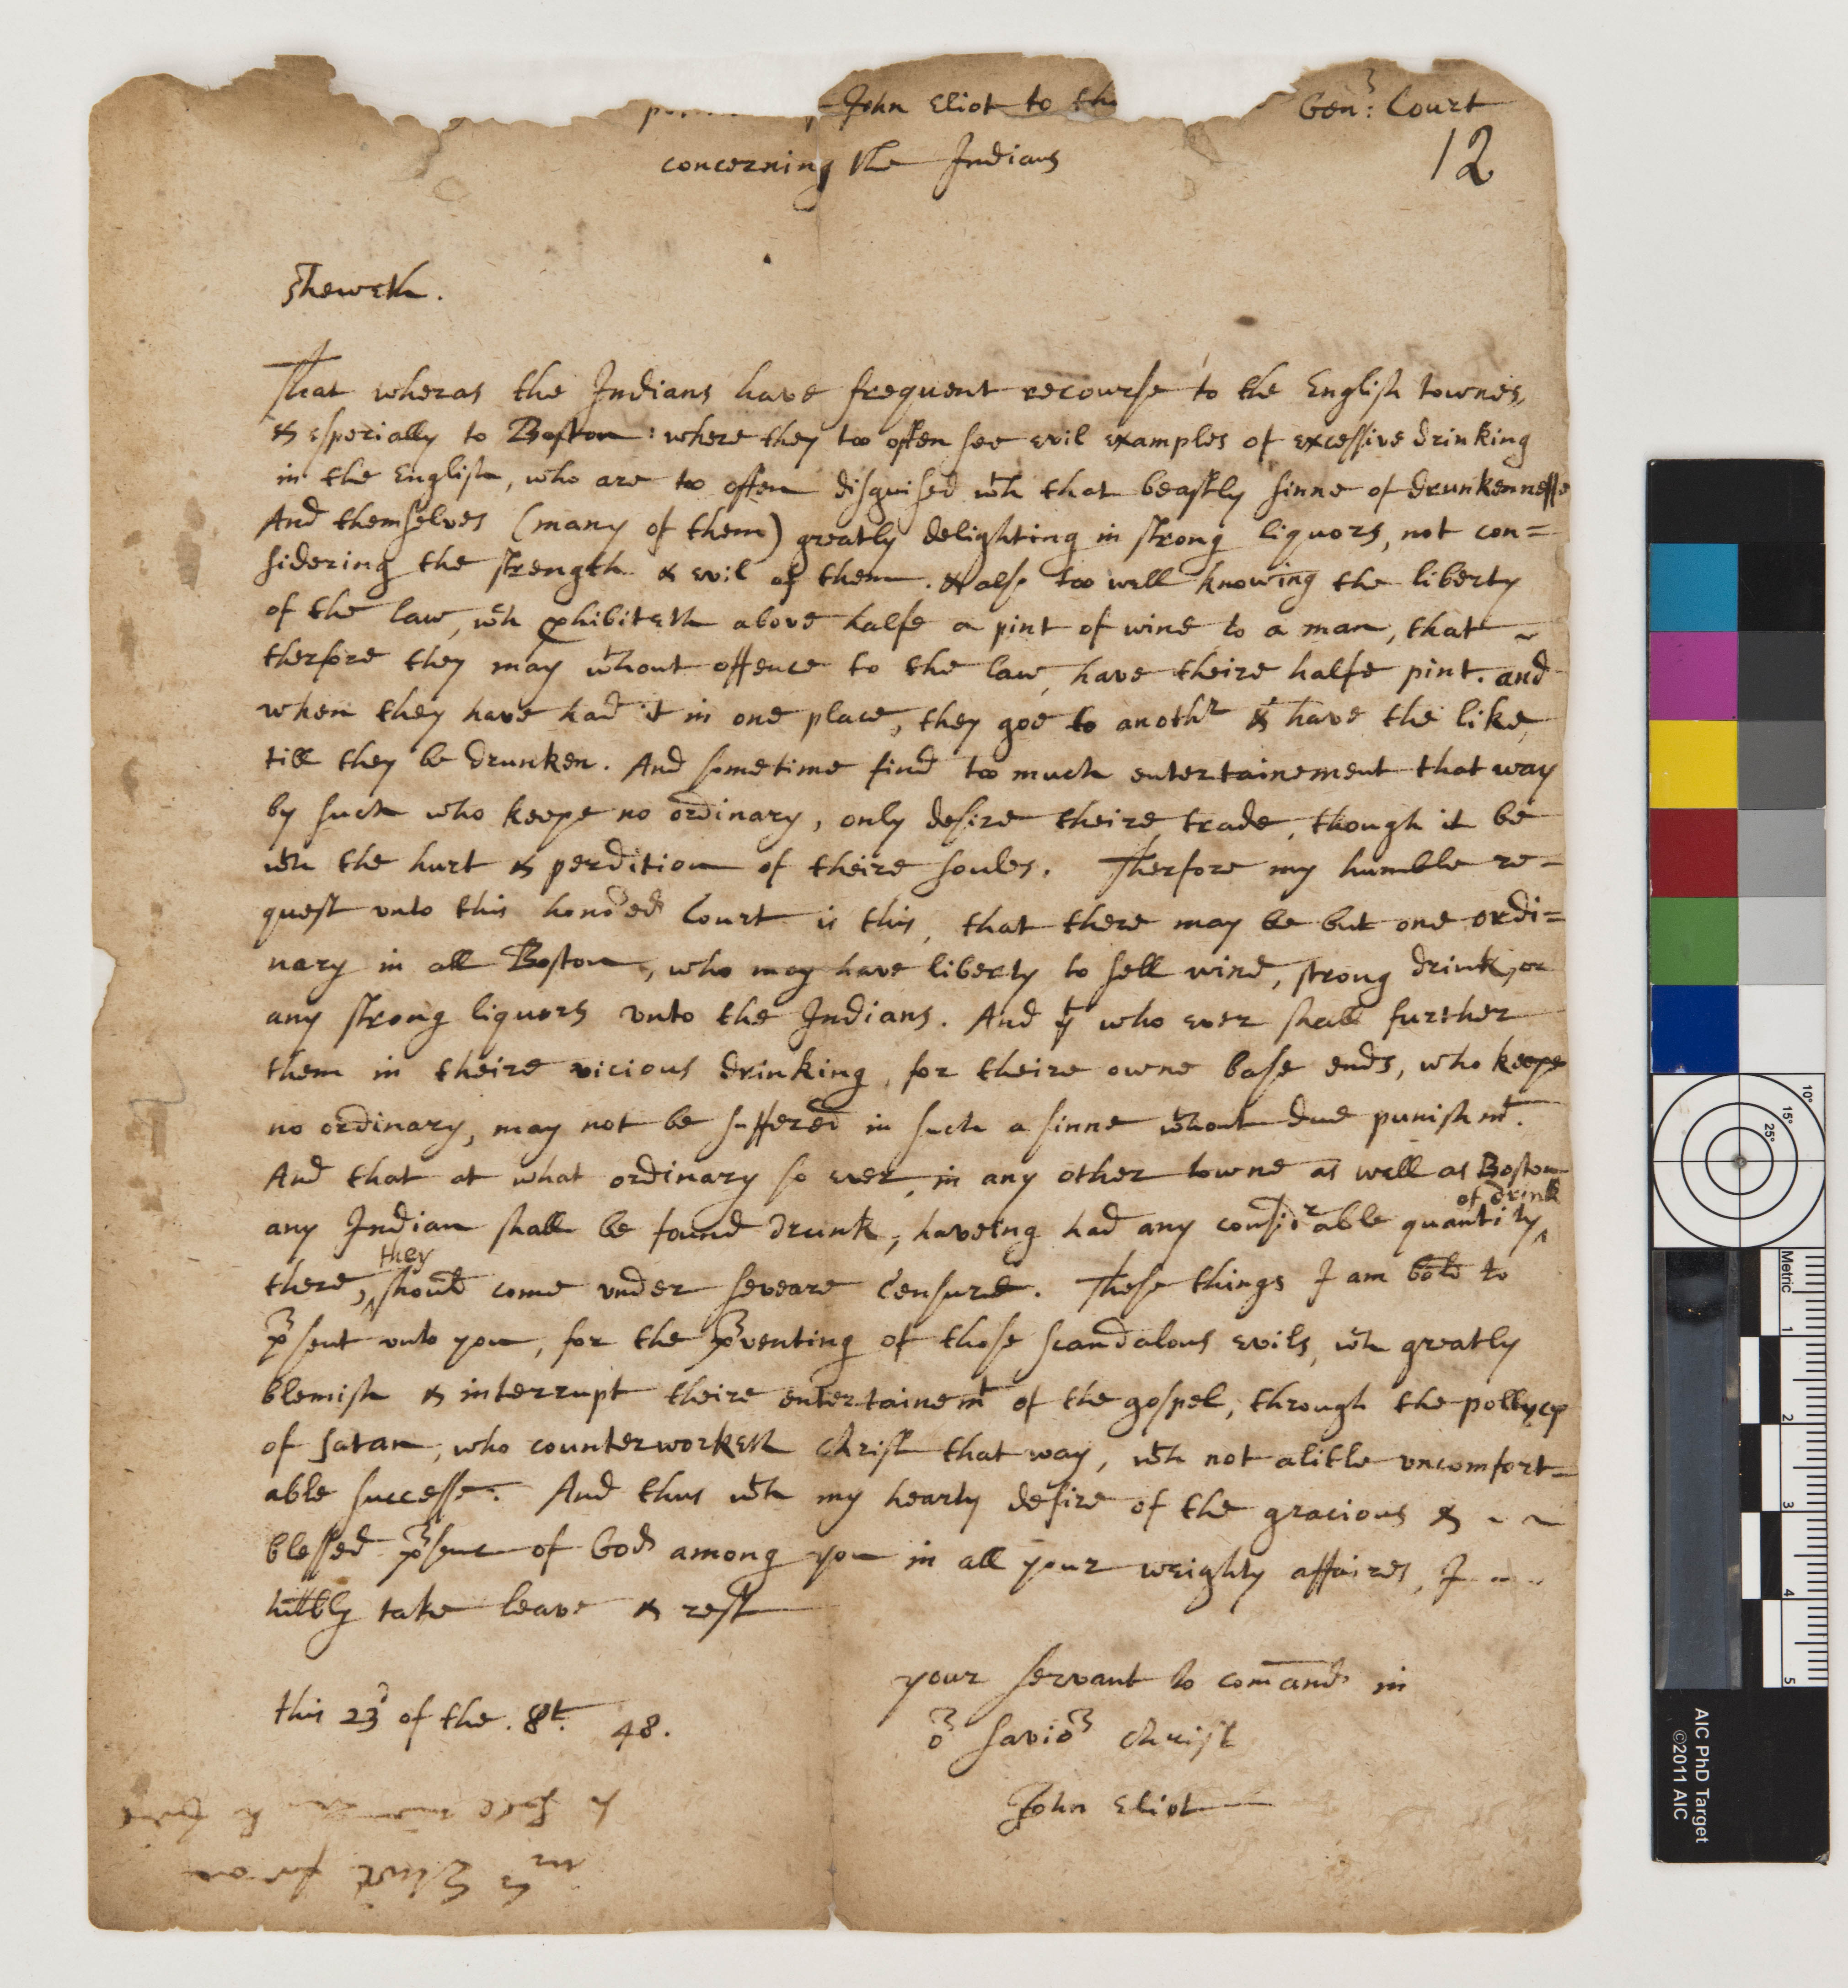 John Eliot to the Gen: Court
12
concerning the Indians
Sheweth.
That wheras the Indians have frequent recourse to the English townes,
& especially to Boston: where they too often see evil examples of excessive drinking
in the English, who are too often disguised wth that beastly sinne of drunkennesse
And themselves (many of them) greatly delighting in strong liquors, not con=
sidering the strength & evil of them. & also too well knowing the liberty
of the law, wch ꝓhibiteth above halfe a pint of wine to a man, that ~
therfore they may wthout offence to the law, have theire halfe pint. and
when they have had it in one place, they goe to anothr & have the like,
till they be drunken. And sometime find too much entertainement that way
by such who keepe no ordinary, only desire theire trade, though it be
wth the hurt & perdition of theire soules. Therfore my humble re=
quest vnto this honored Court is this, that there may be but one ordi=
nary in all Boston, who may have liberty to sell wine, strong drink, or
any strong liquors vnto the Indians. And yt who ever shall further
them in theire vicious drinking, for theire owne base ends, who keepe
no ordinary, may not be suffered in such a sinne wthout due punishmt.
And that at what ordinary so ever, in any other towne as well as Boston
any Indian shall be found drunk, haveing had any considrable quantity of drink
there, they should come vnder seveare Censure. These things I am bold to
prsent vnto you, for the prventing of those scandalous evils, wch greatly
blemish & interrupt theire entertainemt of the gospel, through the pollycy
of Satan, who counterworketh Christ that way, wth not a litle vncomfort=
able successe. And thus wth my hearty desire of the gracious & ~ ~
blessed prsenc of God among you in all your weighty affaires, I ~ ~
hūbly take leave & rest
your servant to com̄and in
this 23d of the. 8t. 48.
or Savior Christ
John Eliot
mr Eliot